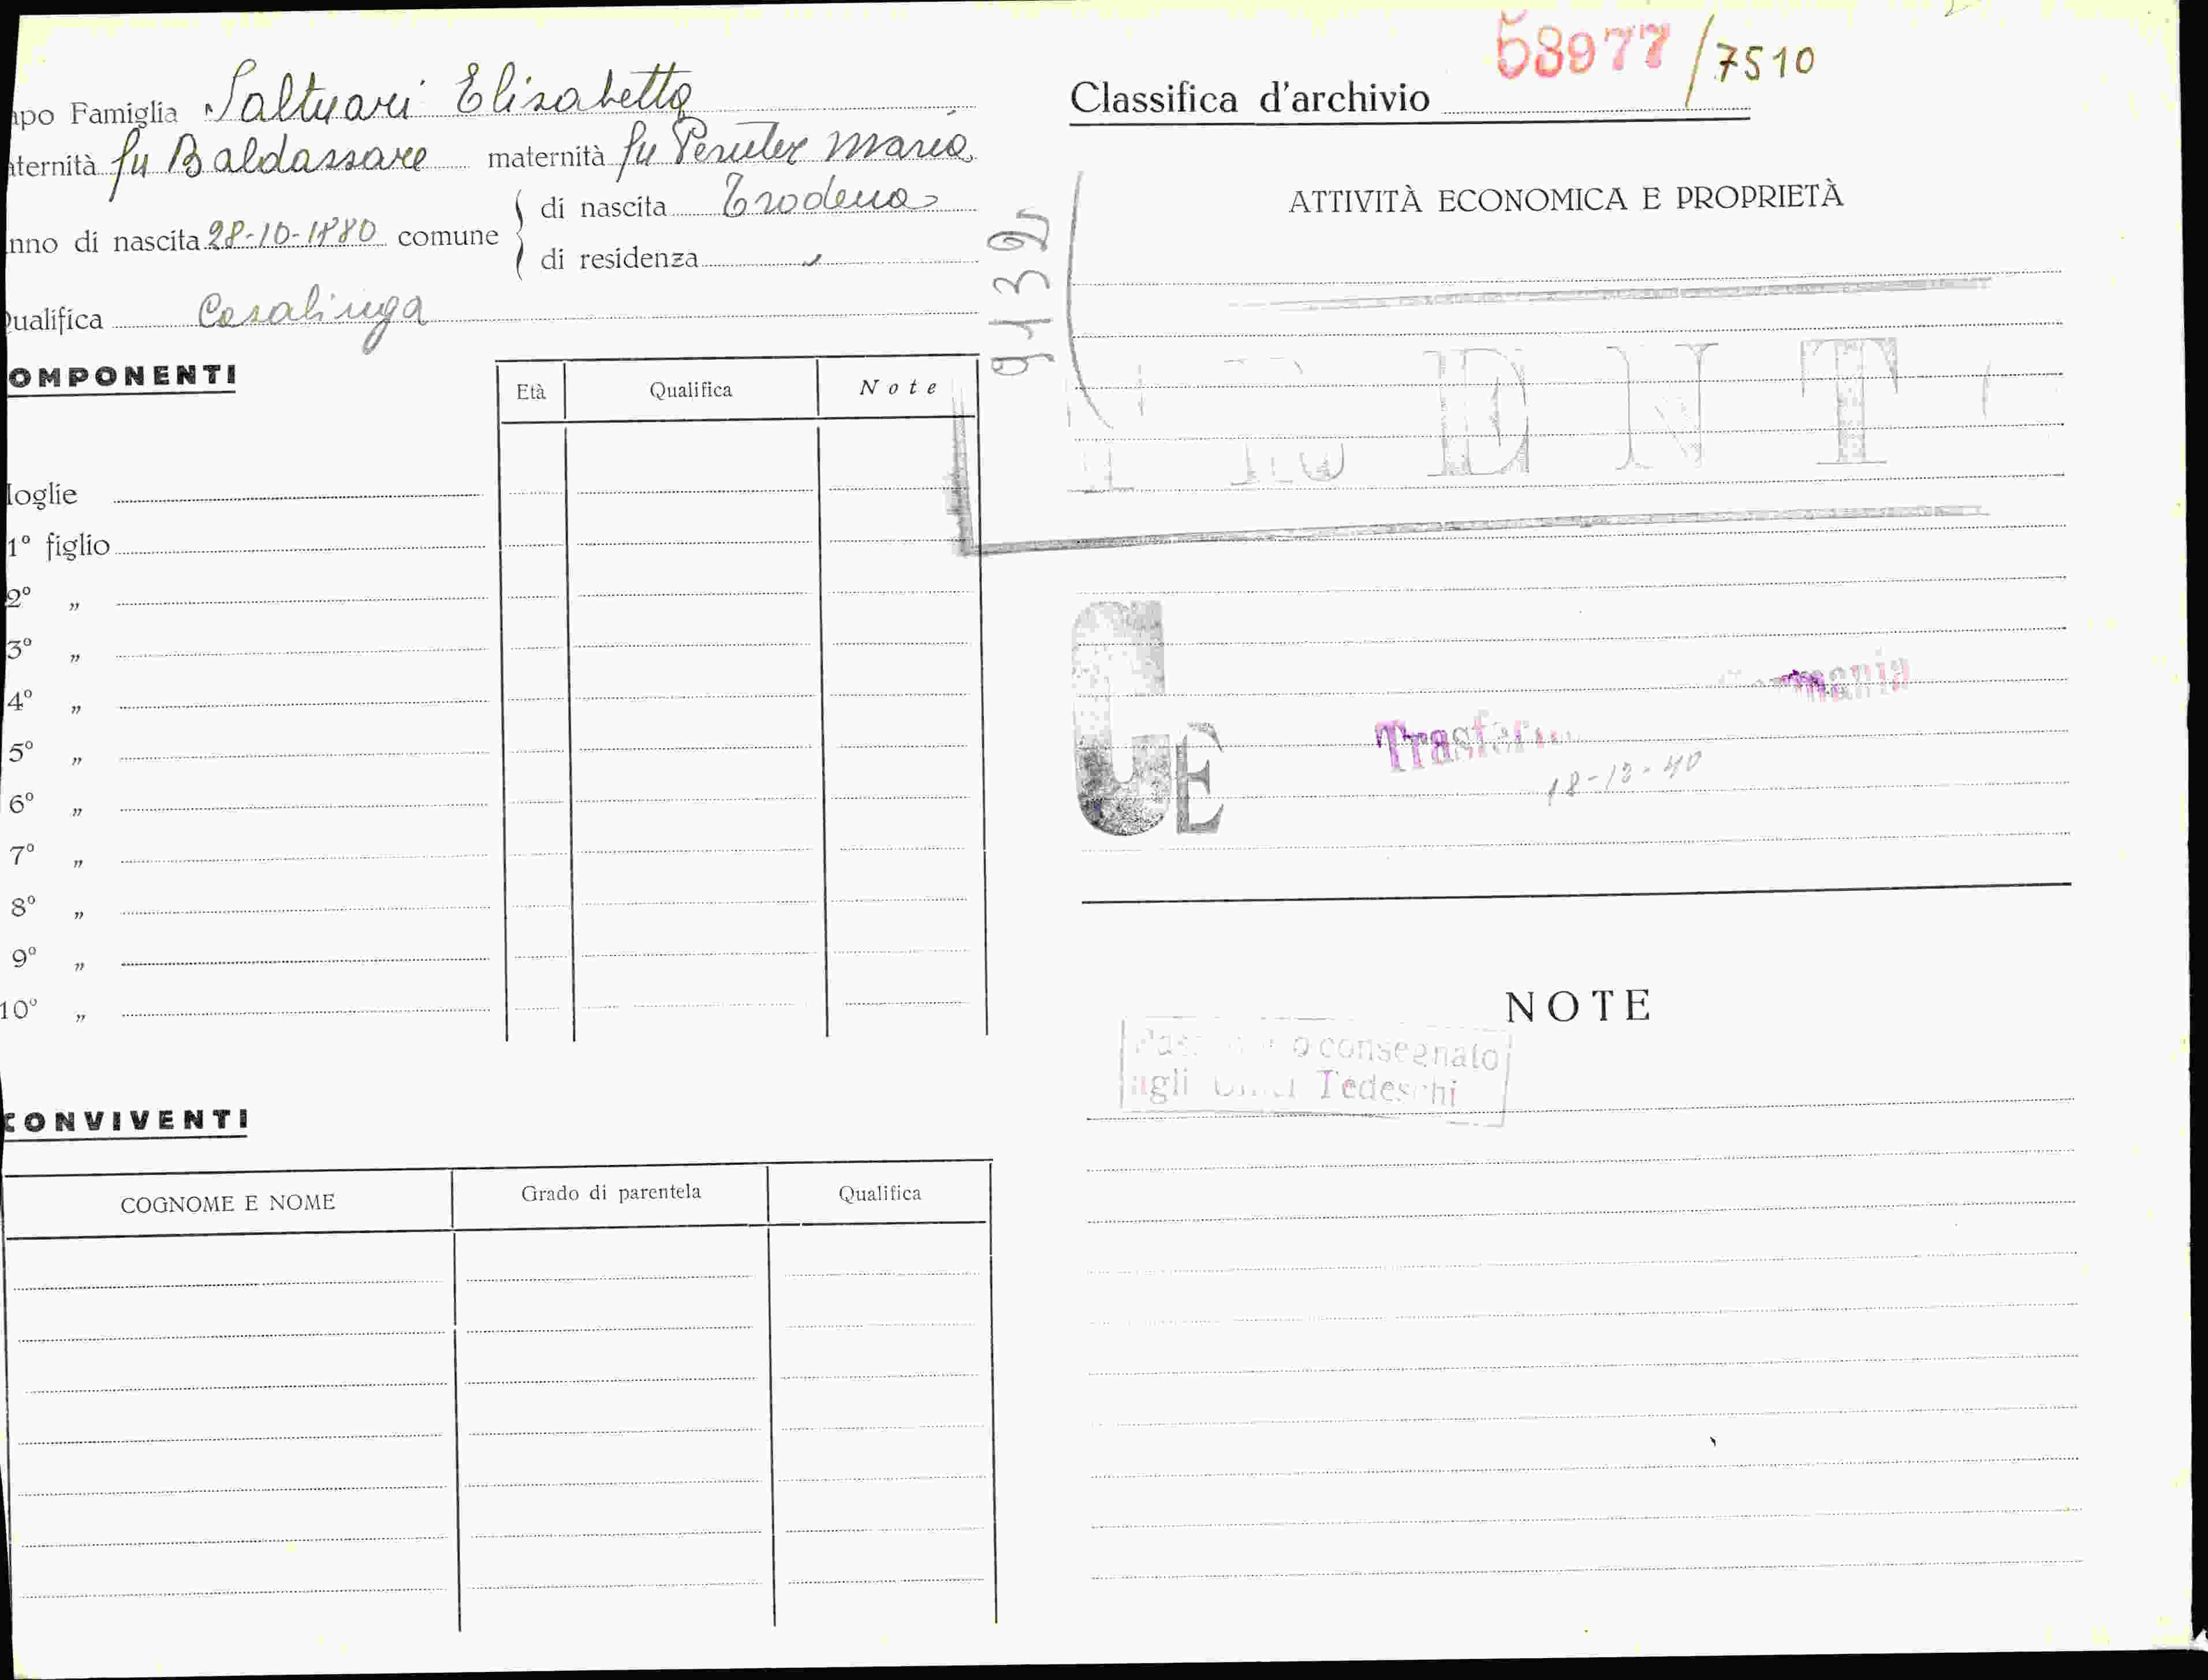 apo Famiglia Saltuari Elisabetta
aternità fu Baldassare maternità fu Peruter Maria
nno di nascita 28-10-1880 comune di nascita Trodena
di residenza "
Qualifica Casalinga
OMPONENTI
Età Qualifica Note
loglie
1° figlio
2° „
3° „
4° „
5° „
6° „
7° „
8° „
9° „
10° „
CONVIVENTI
COGNOME E NOME Grado di parentela Qualifica
91392
58977/7510
Classifica d'archivio
ATTIVITÀ ECONOMICA E PROPRIETÀ
ENT
GE
18-12-40
NOTE
consegnato
agli Tedeschi